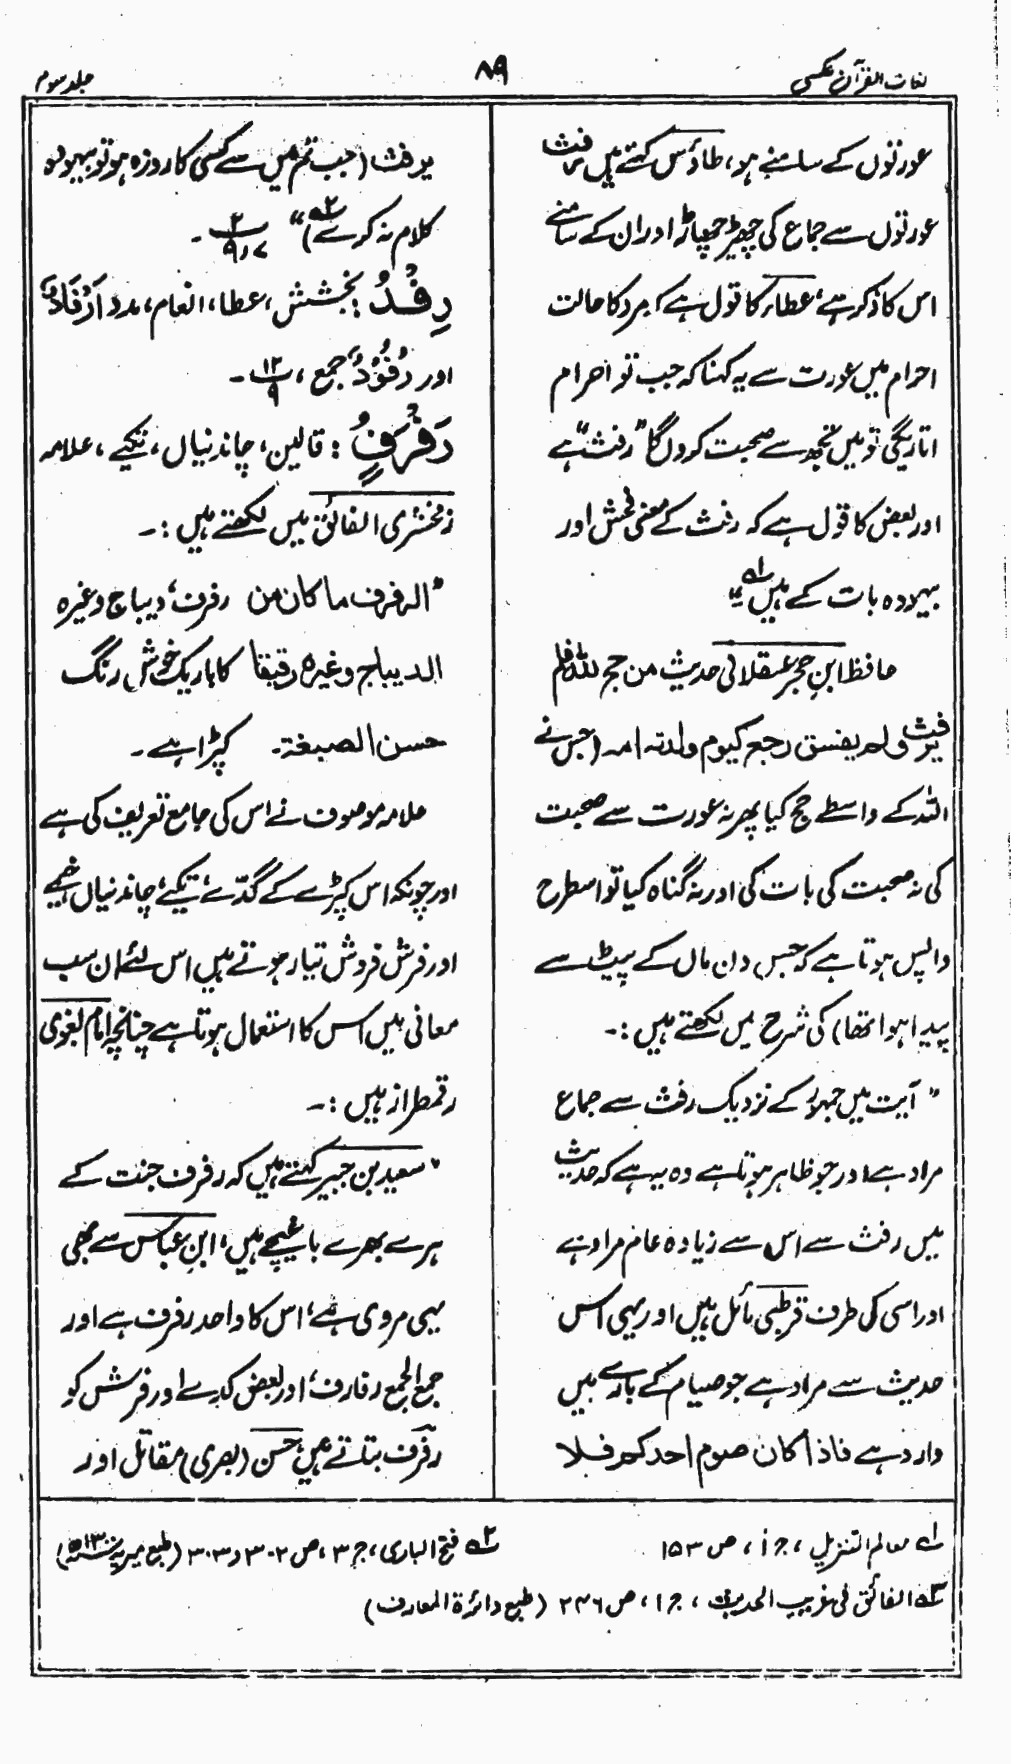 لغات القرآن عکسی
۸۹
جلد سوم
عورتوں کے سامنے ہو، طاؤس کہتے ہیں رفث
عورتوں سے جماع کی چھیڑ چھاڑ اور ان کے سامنے
اس کا ذکر ہے، عطاء کا قول ہے کہ مرد کا حالت
احرام میں عورت سے یہ کہنا کہ جب تو احرام
اتاریگی تو میں تجھ سے صحبت کروں گا "رفث" ہے
اور بعض کا قول ہے کہ رفث کے معنی فحش اور
بیہودہ بات کے ہیں" لہ
حافظ ابن حجر عسقلانی حدیث من حج للہ فلم
یرفث ولم یفسق رجع کیوم ولدتہ امہ (جس نے
اللہ کے واسطے حج کیا پھر نہ عورت سے صحبت
کی نہ صحبت کی بات کی اور نہ گناہ کیا تو اسطرح
واپس ہوتا ہے کہ جس دن ماں کے پیٹ سے
پیدا ہوا تھا) کی شرح میں لکھتے ہیں :۔
" آیت میں جمہور کے نزدیک رفث سے جماع
مراد ہے اور جو ظاہر ہوتا ہے وہ یہ ہے کہ حدیث
میں رفث سے اس سے زیادہ عام مراد ہے
اور اسی کی طرف قرطبی مائل ہیں اور یہی اس
حدیث سے مراد ہے جو صیام کے بارے میں
وارد ہے فاذا کان صوم احدکم فلا
یرفث (جب تم میں سے کسی کا روزہ ہو تو بیہودہ
کلام نہ کرے) ۲ھ" ۲ ۹،۷ ۔
رِفْدُ : بخشش، عطا، انعام، مدد اَرْفَادٌ
اور رُفُوْدٌ جمع، ۱۲ ۹ ۔
رَفْرَفٍ : قالین، چاندنیاں، تکیے، علامہ
زمخشری الفائق میں لکھتے ہیں :۔
"الرفرف ما کان من رفرف، دیباج وغیرہ
الدیباج وغیرہ رقیقا کا باریک خوش رنگ
حسن الصبغة۔ کپڑا ہے۔
علامہ موصوف نے اس کی جامع تعریف کی ہے
اور چونکہ اس کپڑے کے گدّے، تکیے، چاندنیاں، خیمے
اور فرش فروش تیار ہوتے ہیں اس لئے ان سب
معانی میں اس کا استعمال ہوتا ہے چنانچہ امام بغوی
رقمطراز ہیں :۔
"سعید بن جبیر کہتے ہیں کہ رفرف جنت کے
ہرے بھرے باغیچے ہیں، ابن عباس سے بھی
یہی مروی ہے، اس کا واحد رفرف ہے اور
جمع الجمع رفارف، اور بعض گدے اور فرش کو
رفرف بتاتے ہیں، حسن (بصری) مقاتل اور
لہ معالم التنزیل، ج ۱، ص ۱۵۳
۲ھ فتح الباری، ج ۳، ص ۳۰۲ و ۳۰۳ (طبع میریہ
۳ھ الفائق فی غریب الحدیث، ج ۱، ص ۲۴۶ (طبع دائرة المعارف)